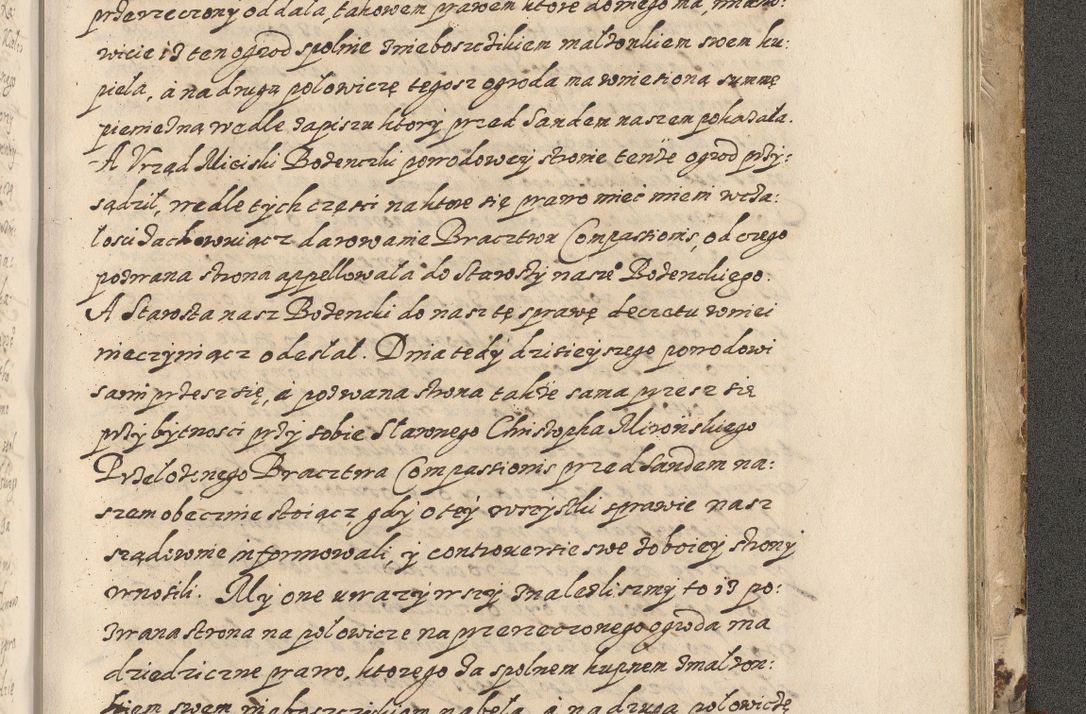 przerzeczony oddala, takowem prawem ktore do niego ma, miano:
wicie iż ten ogrod spolnie z nieboszczikiem malżonkiem swem ku:
piela, a na drugą polowiczę tegosz ogroda ma wniesioną summę
pieniezną wedle zapiszu ktory przed Sandem naszem pokazala.
A Vrząd Mieiski Bożenczki powodowey stronie tenże ogrod przy:
sądzil, wedle tych części na ktore się prawo mieć miem wcża:
lości zachowuiącz darowanie Bracztwu Compassionis, od czego
pozwana strona appellowala do Starosty nasze Bożenckiego.
A Starosta nasz Bożencki do nasz tę sprawę decretu w niei
nieczyniącz odeslal. Dnia tedy dzisieyszego powodowi
sami przesz się, a pozwana strona także sama przesz się
przy bytności przy sobie Slawnego Christopha Mironskiego
Przelożonego Bracztwa Compassionis przed Sandem na:
szem obecznie stoiącz, gdy o tey wszystki sprawie nasz
sządownie informowali, y controuersie swe z oboiey strony
wnosili. My one uwazywszy znalezliszmy to iż po:
zwana strona na polowicze na przerzeczonego ogroda ma
dziedziczne prawo, ktorego za spolnem kupnem z malżon:
kiem swem nieboszczikiem nabela, a na drugą polowiczę